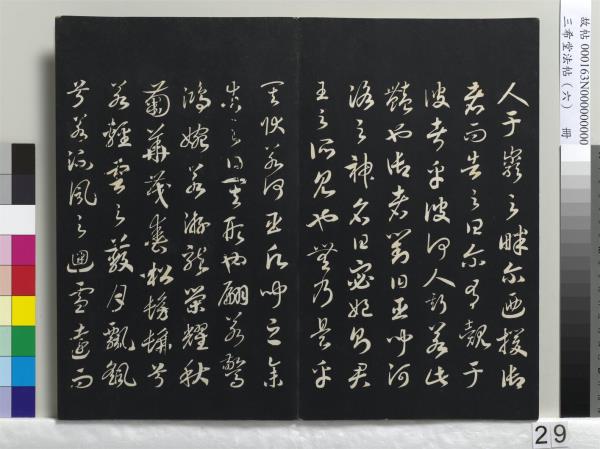 人于巖之畔尔迺援御
者而告之曰尔有覿于
彼者乎彼何人斯若此
豔也御者對曰臣聞河
洛之神名曰宓妃則君
王之所見也無乃是乎
其狀若何臣願聞之余
告之曰其形也翩若驚
鴻婉若游龍榮耀秋
菊華茂春松髣髴兮
若輕雲之蔽月飄颻
兮若流風之迴雪遠而
故帖 000163N000000000
三希堂法帖（六） 冊
29